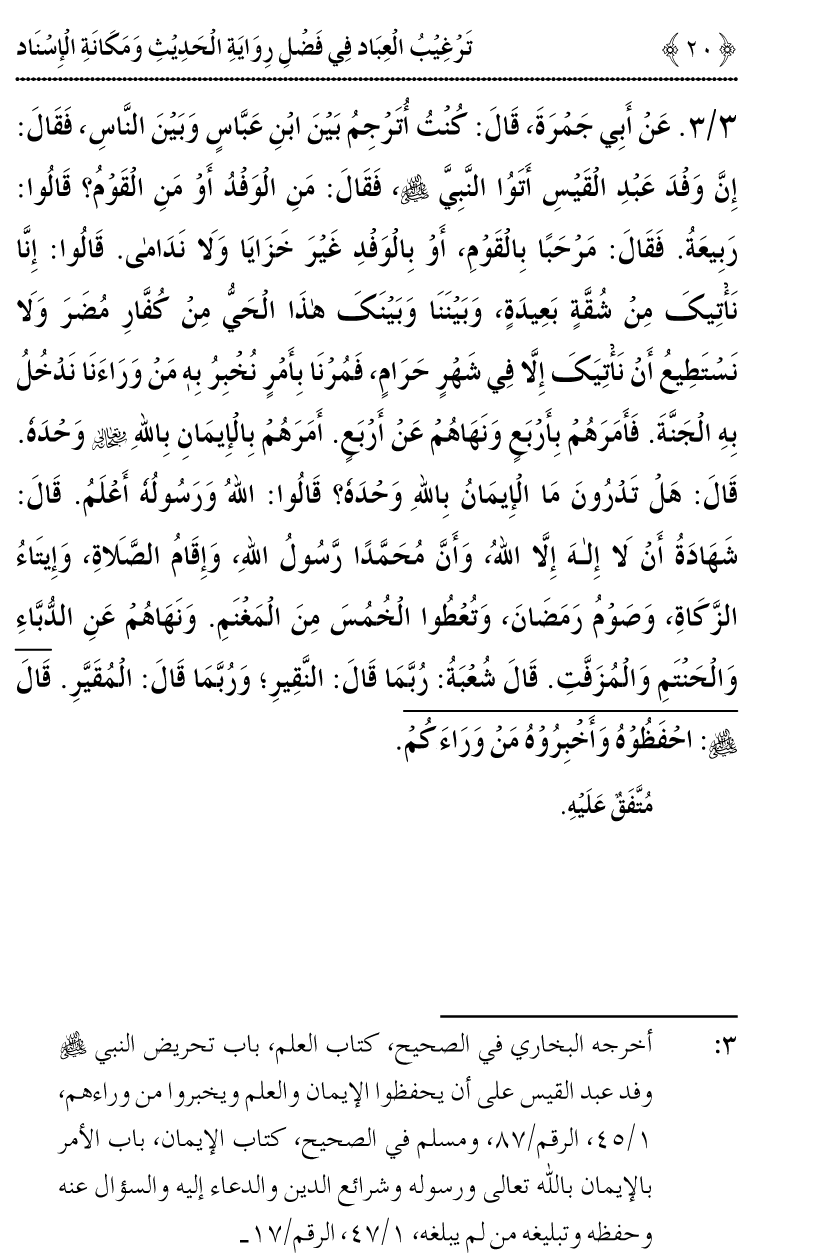 ﴿٢٠﴾ تَرْغِيْبُ الْعِبَاد فِي فَضْلِ رِوَايَةِ الْحَدِيْثِ وَمَكَانَةِ الْإِسْنَاد
٣/٣. عَنْ أَبِي جَمْرَةَ، قَالَ: كُنْتُ أُتَرْجِمُ بَيْنَ ابْنِ عَبَّاسٍ وَبَيْنَ النَّاسِ، فَقَالَ:
إِنَّ وَفْدَ عَبْدِ الْقَيْسِ أَتَوُا النَّبِيَّ ﷺ، فَقَالَ: مَنِ الْوَفْدُ أَوْ مَنِ الْقَوْمُ؟ قَالُوا:
رَبِيعَةُ. فَقَالَ: مَرْحَبًا بِالْقَوْمِ، أَوْ بِالْوَفْدِ غَيْرَ خَزَايَا وَلَا نَدَامٰى. قَالُوا: إِنَّا
نَأْتِيكَ مِنْ شُقَّةٍ بَعِيدَةٍ، وَبَيْنَنَا وَبَيْنَكَ هٰذَا الْحَيُّ مِنْ كُفَّارِ مُضَرَ وَلَا
نَسْتَطِيعُ أَنْ نَأْتِيَكَ إِلَّا فِي شَهْرٍ حَرَامٍ، فَمُرْنَا بِأَمْرٍ نُخْبِرُ بِهٖ مَنْ وَرَاءَنَا نَدْخُلُ
بِهِ الْجَنَّةَ. فَأَمَرَهُمْ بِأَرْبَعٍ وَنَهَاهُمْ عَنْ أَرْبَعٍ. أَمَرَهُمْ بِالْإِيمَانِ بِاللهِ وَحْدَهٗ.
قَالَ: هَلْ تَدْرُونَ مَا الْإِيمَانُ بِاللهِ وَحْدَهٗ؟ قَالُوا: اللهُ وَرَسُولُهٗ أَعْلَمُ. قَالَ:
شَهَادَةُ أَنْ لَا إِلٰهَ إِلَّا اللهُ، وَأَنَّ مُحَمَّدًا رَّسُولُ اللهِ، وَإِقَامُ الصَّلَاةِ، وَإِيتَاءُ
الزَّكَاةِ، وَصَوْمُ رَمَضَانَ، وَتُعْطُوا الْخُمُسَ مِنَ الْمَغْنَمِ. وَنَهَاهُمْ عَنِ الدُّبَّاءِ
وَالْحَنْتَمِ وَالْمُزَفَّتِ. قَالَ شُعْبَةُ: رُبَّمَا قَالَ: النَّقِيرِ؛ وَرُبَّمَا قَالَ: الْمُقَيَّرِ. قَالَ
ﷺ: احْفَظُوْهُ وَأَخْبِرُوْهُ مَنْ وَرَاءَكُمْ.
مُتَّفَقٌ عَلَيْهِ.
٣: أخرجه البخاري في الصحيح، كتاب العلم، باب تحريض النبي ﷺ
وفد عبد القيس على أن يحفظوا الإيمان والعلم ويخبروا من وراءهم،
٤٥/١، الرقم/٨٧، ومسلم في الصحيح، كتاب الإيمان، باب الأمر
بالإيمان بالله تعالى ورسوله وشرائع الدين والدعاء إليه والسؤال عنه
وحفظه وتبليغه من لم يبلغه، ٤٧/١، الرقم/١٧ـ